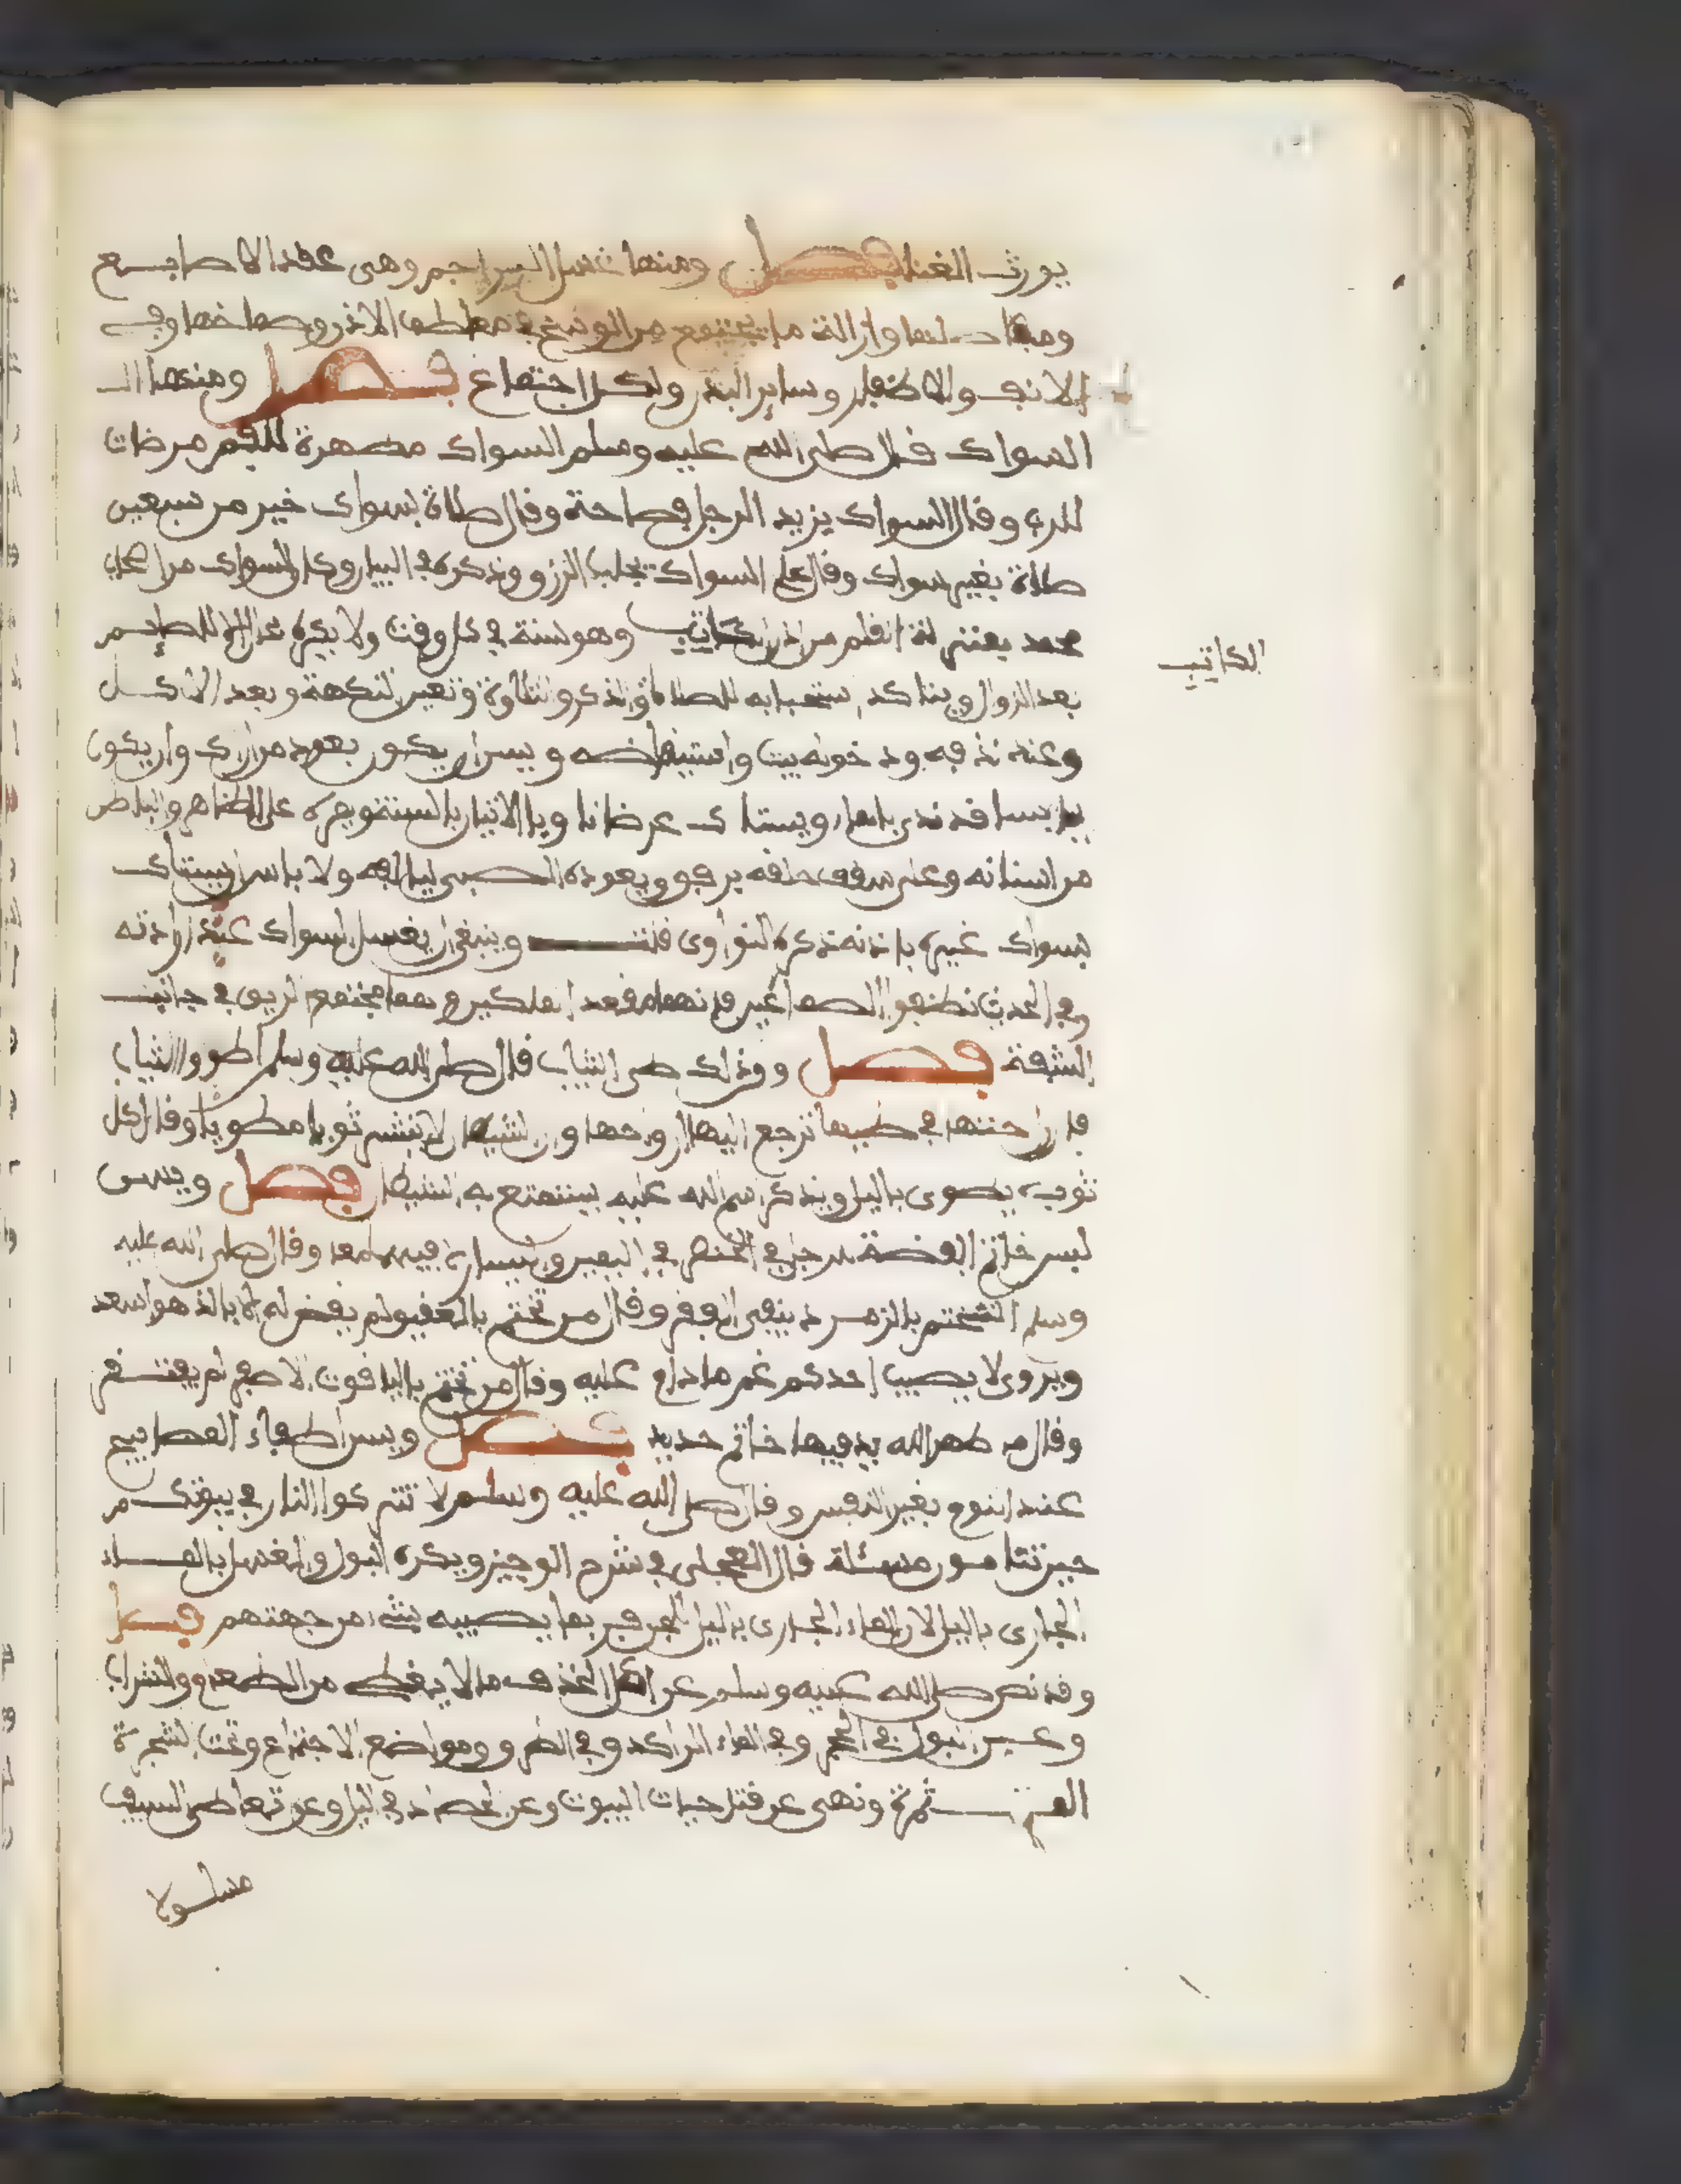 يورث الغنا فصل ومنها غسل البراجم وهى عقد الاصابع
وازالة ما يجتمع من الوسخ في معاطف الاذن وصماخها وفي
الانف والاظفار وساير البدن ولكل اجتماع فصل ومنها الـ
السواك فال صلى الله عليه وسلم السواك مطهرة للفم مرضات
للرب وفال السواك يزيد الرجل فصاحة وفال صلاة بسواك خير من سبعين
صلاة بغير سواك وفال على السواك تجلب الرزق وذكره في البيان وكان السواك من اصحاب
محمد بمنزلة القلم من اذن الكاتب وهو سنة في كل وقت ولا يكره عن الا للصايم
بعد الزوال ويتاكد استحبابه للصلاة والذكر والتلاوة وتغير النكهة وبعد الاكل
وعند نومه ودخوله بيت واستيقاظه ويسن ان يكون بعود من اراك وان يكون
يابسا قد ندى بالماء ويستاك عرضا نا وبا الاتيان بالسنة ويجره على الظاهر والباطن
من اسنانه وعلى سقف حلقه برفق ويعوده الصبى ليالفه ولا باس ان يستاك
بسواك غيره باذنه ذكره النواوى فلت وينبغى ان يغسل السواك عند ارادته
وفي الحديث نظفوا الصماغين فانهما مقعد الملكين وهما مجتمع الريق في جانب
الشفة فصل وكذلك طى الثياب فال صلى الله عليه وسلم اطووا الثياب
فان راحتها في طيها ترجع اليها ارواحها وان الشيطان لا ينشر ثوبا مطويا وفال كل
ثوب يطوى بالليل ويذكر اسم الله عليه يستمتع به الشيطان فصل ويسن
لبس خاتم الفضة للرجل في الخنصر في اليمين واليسار او فيهما معا وفال صلى الله عليه
وسلم التختم بالزمرد ينفى الفقر وفال من تختم بالعقيق لم يقض له الا بالذ هو اسعد
ويروى لا يصيب احدكم غم ما دام عليه وفال من تختم بالياقوت الاصفر لم يفتقر
وفال ما طهر الله يد فيها خاتم حديد فصل ويسن اطفاء المصابيح
عند النوم بغير النفس وفال صلى الله عليه وسلم لا تتركوا النار في بيوتكم
حين تنامون مسئلة فال العجلى في شرح الوجيز ويكره البول والغسل بالماء
الجارى بالليل لان الماء الجارى بالليل للجن فربما يصيبه شىء من جهتهم فصل
وقد نهى صلى الله عليه وسلم عن اكل ما لا يغطى من الطعام والشراب
وعن البول في الحجر وفي الماء الراكد وفي الطرق ومواضع الاجتماع وتحت الشجرة
المثمرة ونهى عن قتل حيات البيوت وعن الحصاد في الليل وعن تعاطى السيف
مسلولا
الكاتب